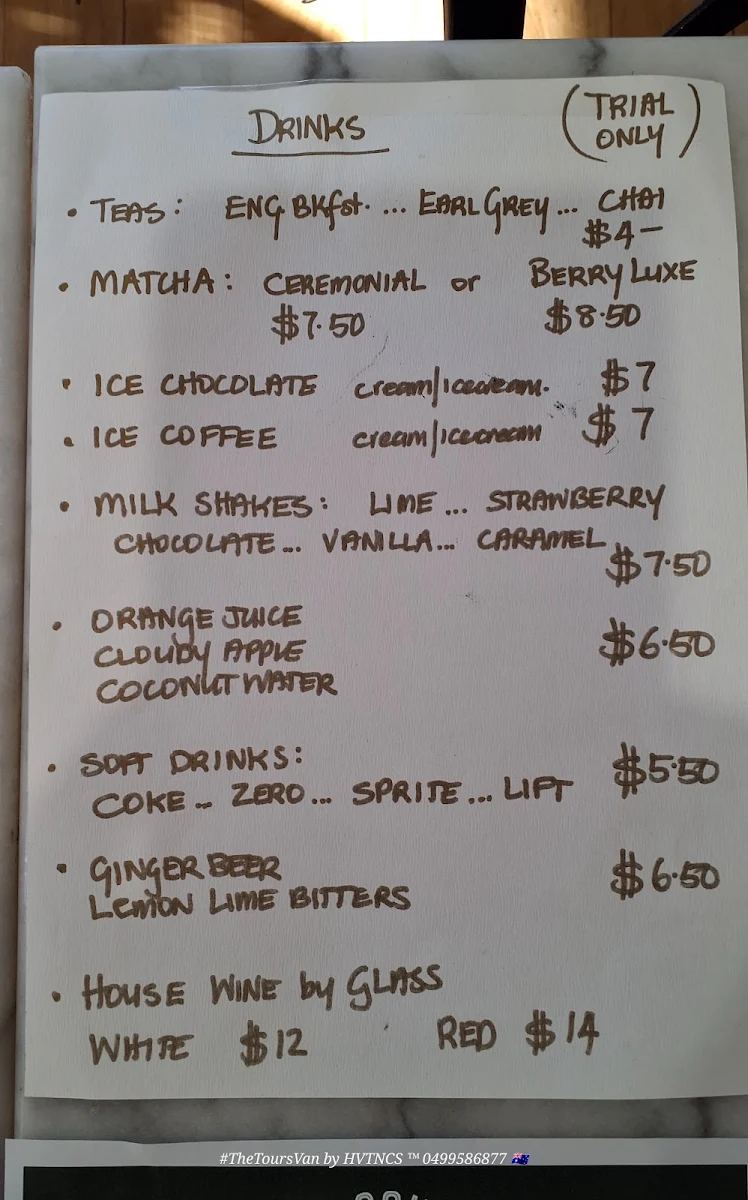 DRINKS (TRIAL ONLY)
• TEAS: ENG BKfst. ... EARL GREY ... CHAI
$4—
• MATCHA: CEREMONIAL or BERRY LUXE
$7.50 $8.50
• ICE CHOCOLATE cream/icecream. $7
• ICE COFFEE cream/icecream $7
• MILK SHAKES: LIME ... STRAWBERRY
CHOCOLATE... VANILLA... CARAMEL
$7.50
• ORANGE JUICE
CLOUDY APPLE $6.50
COCONUT WATER
• SOFT DRINKS: $5.50
COKE ... ZERO ... SPRITE ... LIFT
• GINGER BEER $6.50
LEMON LIME BITTERS
• HOUSE WINE by GLASS
WHITE $12 RED $14
#TheToursVan by HVTNCS ™ 0499586877 🇦🇺